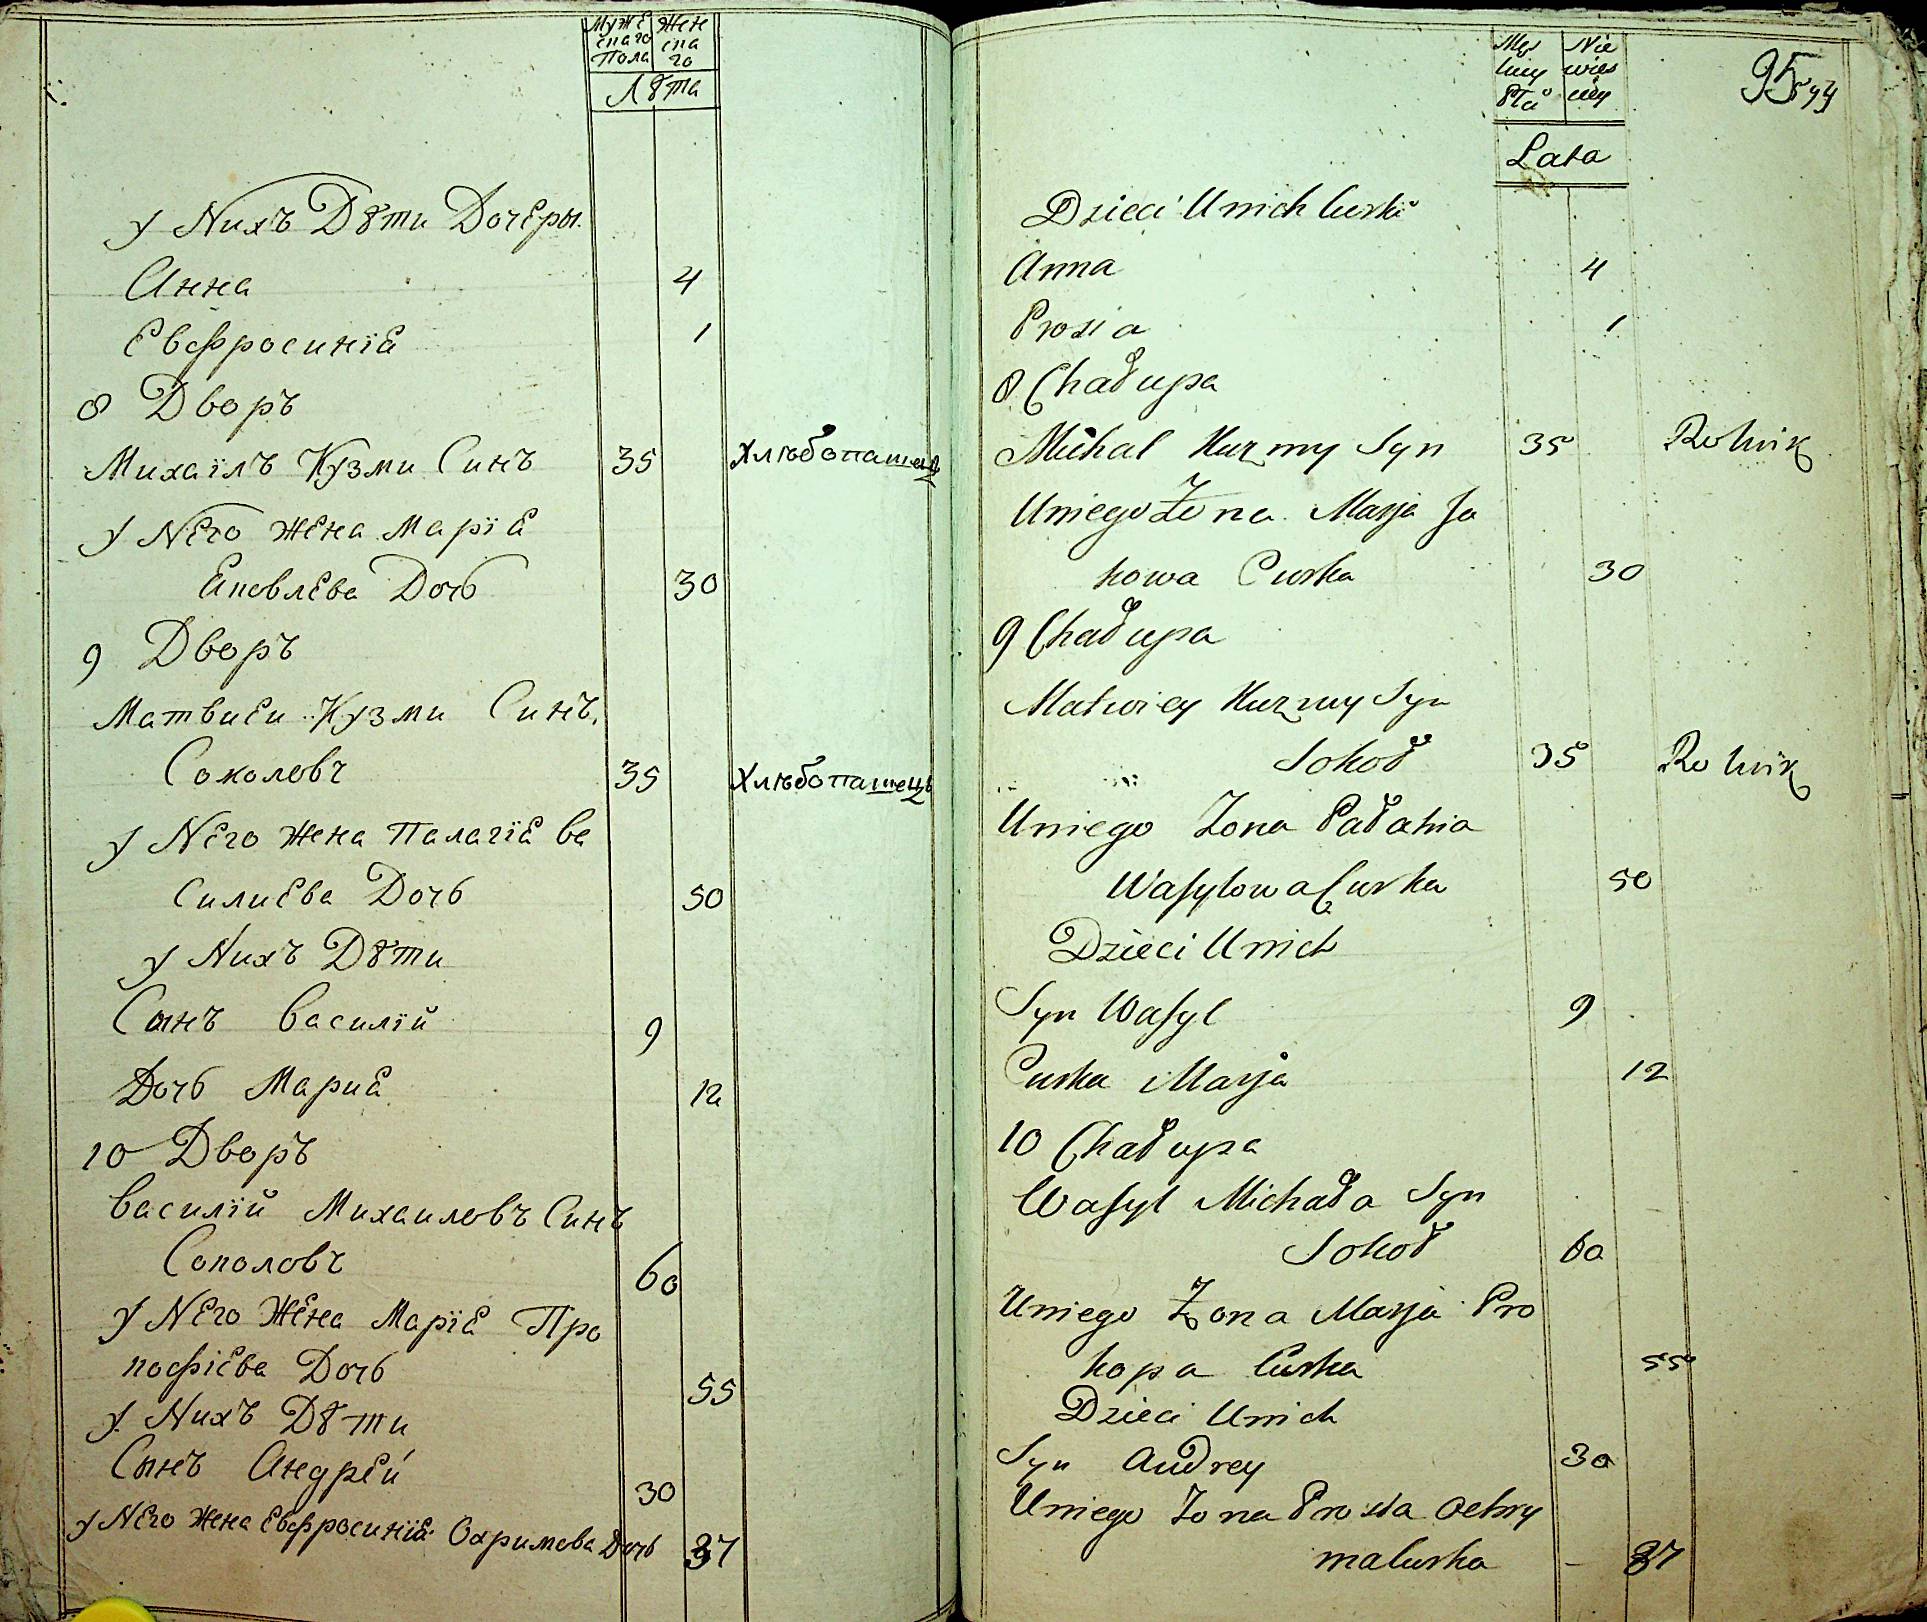 Мужескаго Пола Женскаго
Лѣта
у Нихъ Дѣти Дочеры.
Анна 4
Евфросиніѣ 1
8 Дворъ
Михаілъ Кузми Синъ 35 Хлѣбопашец
у Него жена Маріѣ
Яковлева Дочь 30
9 Дворъ
Матвией Кузми Синъ.
Соколовъ 35 Хлѣбопашецъ
у Него жена Палагіѣ Ва
силиева Дочь 50
у Нихъ Дѣти
Сынъ Василій 9
Дочь Мариѣ 12
10 Дворъ
Василій Михаиловъ Синъ
Соколовъ 60
у Него Жена Маріѣ Про
кофіева Дочь 55
у Нихъ Дѣти
Сынъ Андрей 30
у Него жена Евфросиніѣ Охримова Дочь 37
95
Lata
Dzieci Unich Curki
Anna 4
Prosia 1
8 Chałupa
Michal Kuzmy Syn 35 Rolnik
Uniego Żona Marja Ja
kowa Curka 30
9 Chałupa
Matwiey Kuzmy Syn
Sokoł 35 Rolnik
Uniego Zona Pałahia
Wasylowa Curka 50
Dzieci Unich
Syn Wasyl 9
Curka Marja 12
10 Chałupa
Wasyl Michała Syn
Sokoł 60
Uniego Żona Marja Pro
kopa Curka 55
Dzieci Unich
Syn Andrey 30
Uniego Zona Prosia Ochry
ma Curka - 37